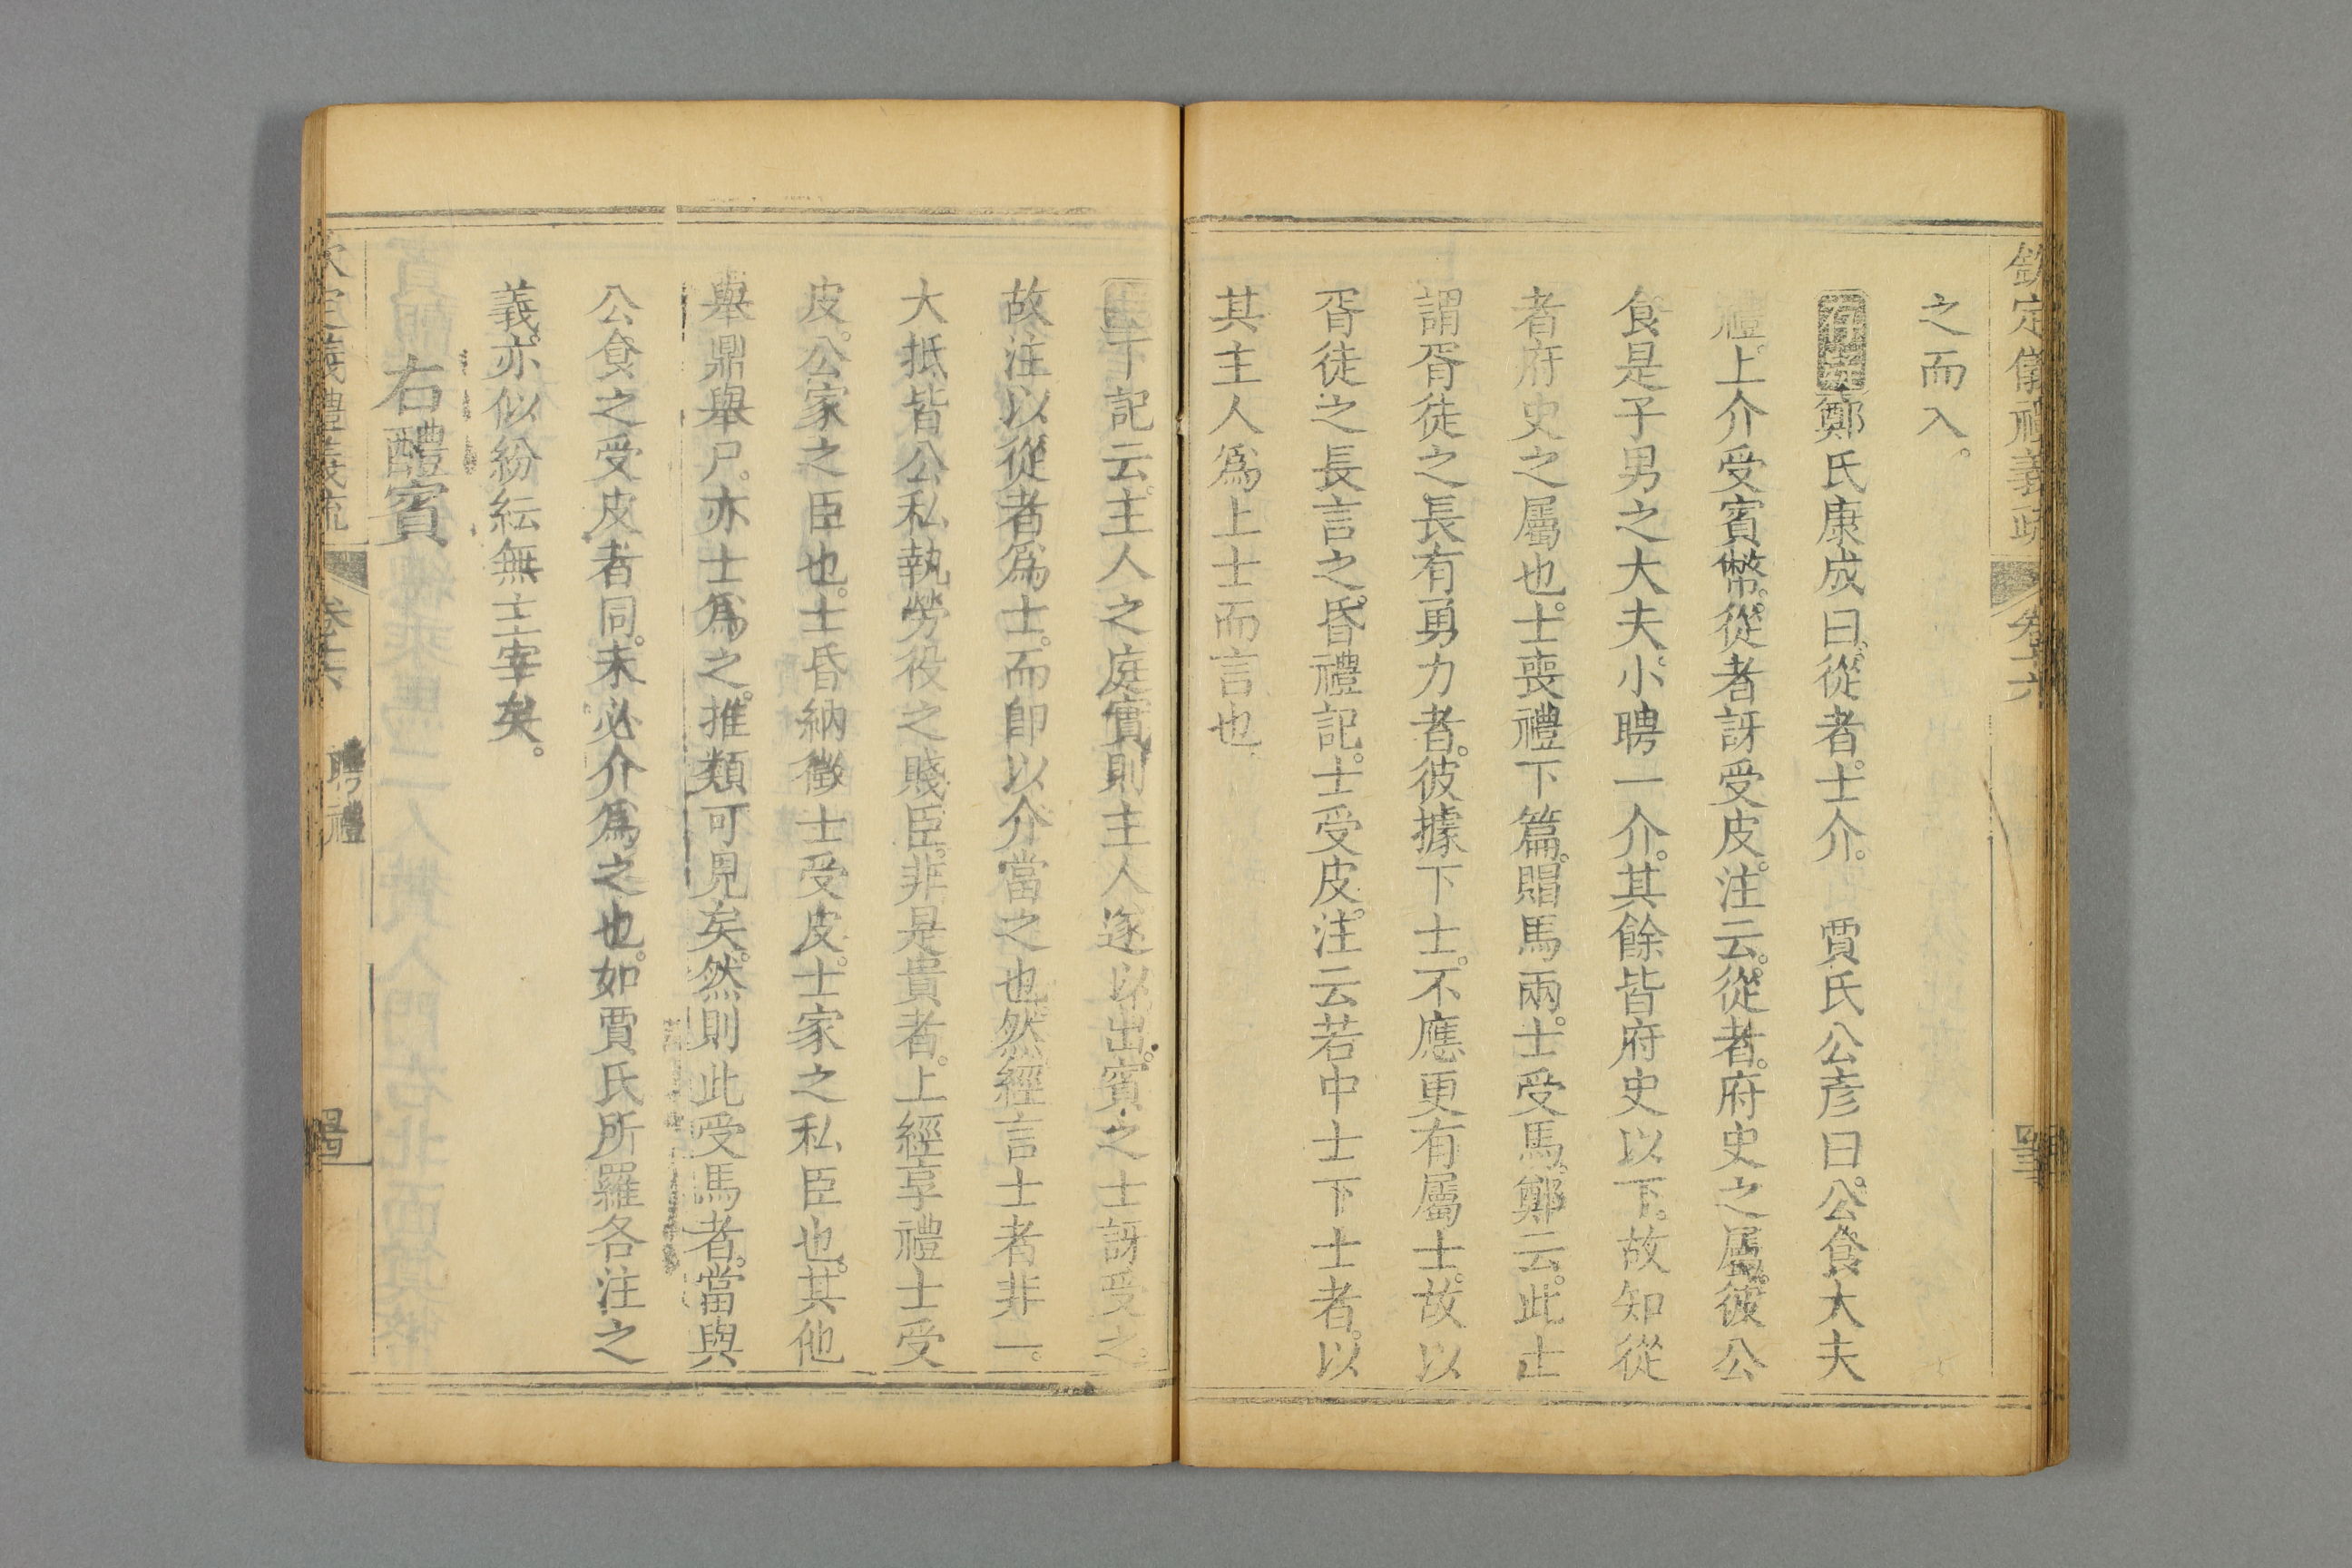 欽定儀禮義疏 卷十六
之而入。
存疑鄭氏康成曰。從者。士介。 賈氏公彥曰。公食大夫
禮。上介受賓幣。從者訝受皮。注云。從者。府史之屬。彼公
食是子男之大夫。小聘一介。其餘皆府史以下。故知從
者府史之屬也。士喪禮下篇。賵馬兩。士受馬。鄭云。此士
謂胥徒之長有勇力者。彼據下士。不應更有屬士。故以
胥徒之長言之。昏禮記。士受皮。注云若中士下士者。以
其主人爲上士而言也
下記云。主人之庭實則主人遂以出。賓之士訝受之。
故注以從者爲士。而即以介當之也。然經言士者非一。
大抵皆公私執勞役之賤臣。非是貴者。上經享禮士受
皮。公家之臣也。士昏納徵士受皮。士家之私臣也。其他
舉鼎舉尸。亦士爲之。推類可見矣。然則此受馬者。當與
公食之受皮者同。未必介爲之也。如賈氏所羅各注之
義。亦似紛紜無主宰矣。
右醴賓
欽定儀禮義疏 卷十六 聘禮